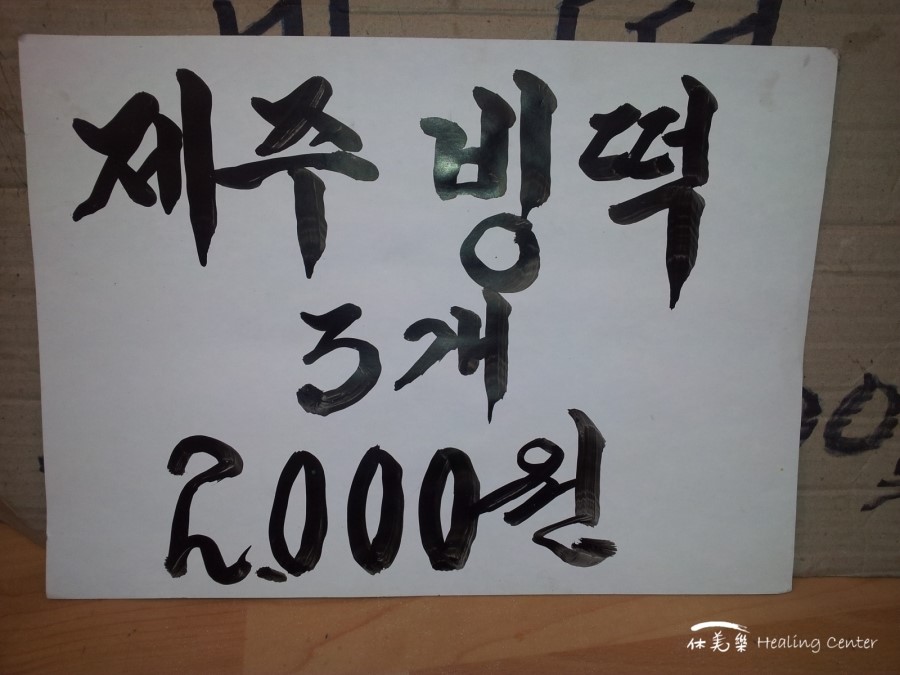 제주 빙떡
3개
2,000원
休美樂 Healing Center